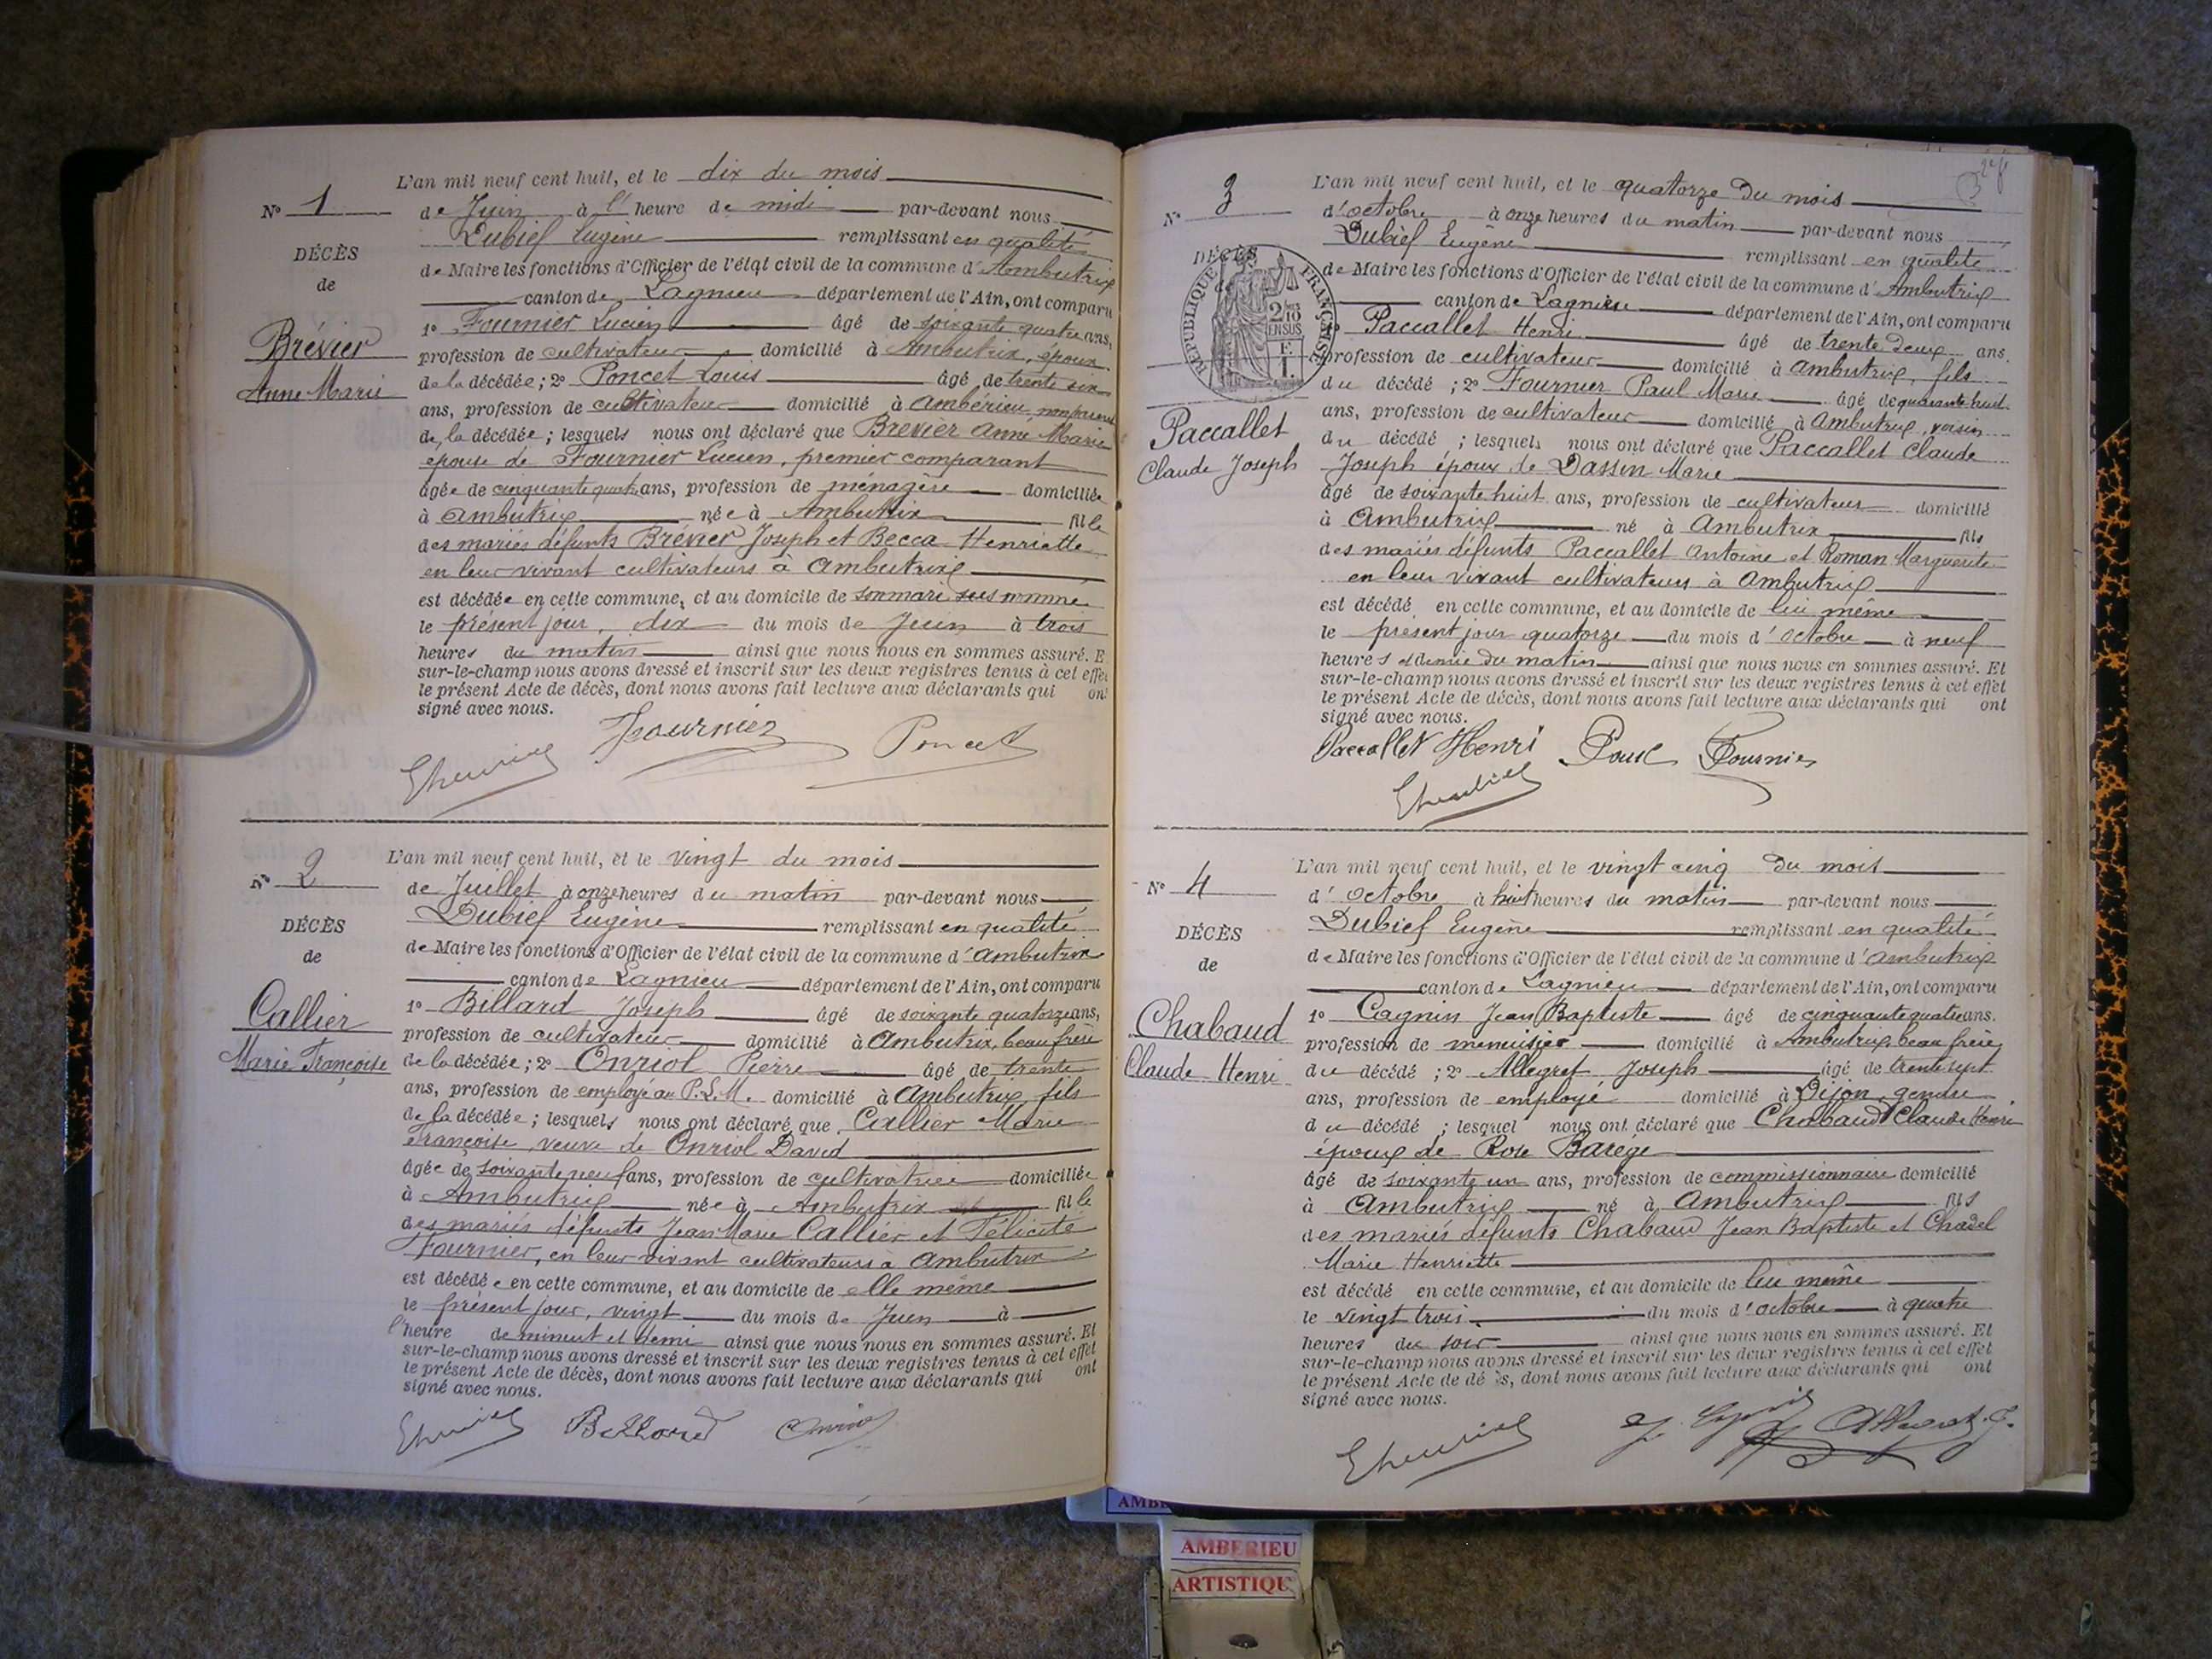 N° 1
DÉCÈS
de
Brévier
Anne Marie
L'an mil neuf cent huit, et le dix du mois
de Juin à l'heure de midi par-devant nous
Dubief Eugène remplissant en qualité
de Maire les fonctions d'Officier de l'état civil de la commune d'Ambutrix
canton de Lagnieu département de l'Ain, ont comparu
1° Fournier Lucien âgé de soixante quatre ans,
profession de cultivateur domicilié à Ambutrix, époux
de la décédée; 2° Poncet Louis âgé de trente six
ans, profession de cultivateur domicilié à Ambérieu, non parent
de la décédée; lesquels nous ont déclaré que Brévier Anne Marie
épouse de Fournier Lucien, premier comparant
âgée de cinquante quatre ans, profession de ménagère domiciliée
à Ambutrix née à Ambutrix fille
des mariés défunts Brévier Joseph et Becca Henriette
en leur vivant cultivateurs à Ambutrix
est décédée en cette commune, et au domicile de son mari sus nommé
le présent jour, dix du mois de Juin à trois
heures du matin ainsi que nous nous en sommes assuré. E
sur-le-champ nous avons dressé et inscrit sur les deux registres tenus à cet effet
le présent Acte de décès, dont nous avons fait lecture aux déclarants qui ont
signé avec nous.
Fournier Poncet
N° 2
DÉCÈS
de
Callier
Marie Françoise
L'an mil neuf cent huit, et le vingt du mois
de Juillet à onze heures du matin par-devant nous
Dubief Eugène remplissant en qualité
de Maire les fonctions d'Officier de l'état civil de la commune d'Ambutrix
canton de Lagnieu département de l'Ain, ont comparu
1° Billard Joseph âgé de soixante quatorze ans,
profession de cultivateur domicilié à Ambutrix, beau frère
de la décédée; 2° Onriol Pierre âgé de trente
ans, profession de employé au P.L.M. domicilié à Ambutrix fils
de la décédée; lesquels nous ont déclaré que Callier Marie
Françoise, veuve de Onriol David
âgée de soixante neuf ans, profession de cultivatrice domiciliée
à Ambutrix née à Ambutrix fille
des mariés défunts Jean Marie Callier et Félicité
Fournier, en leur vivant cultivateurs à Ambutrix
est décédée en cette commune, et au domicile de elle même
le présent jour, vingt du mois de Juin à
l'heure de minuit et demi ainsi que nous nous en sommes assuré. Et
sur-le-champ nous avons dressé et inscrit sur les deux registres tenus à cet effet
le présent Acte de décès, dont nous avons fait lecture aux déclarants qui ont
signé avec nous.
Billard
N° 3
DÉCÈS
RÉPUBLIQUE FRANÇAISE
2/10 EN SUS
F.
1.
Paccallet
Claude Joseph
L'an mil neuf cent huit, et le quatorze du mois
d'octobre à onze heures du matin par-devant nous
Dubief Eugène remplissant en qualité
de Maire les fonctions d'Officier de l'état civil de la commune d'Ambutrix
canton de Lagnieu département de l'Ain, ont comparu
Paccallet Henri âgé de trente deux ans.
profession de cultivateur domicilié à Ambutrix, fils
du décédé; 2° Fournier Paul Marie âgé de quarante huit
ans, profession de cultivateur domicilié à Ambutrix, voisin
du décédé; lesquels nous ont déclaré que Paccallet Claude
Joseph époux de Dassin Marie
âgé de soixante huit ans, profession de cultivateur domicilié
à Ambutrix né à Ambutrix fils
des mariés défunts Paccallet Antoine et Roman Marguerite
en leur vivant cultivateurs à Ambutrix
est décédé en cette commune, et au domicile de lui même
le présent jour quatorze du mois d'octobre à neuf
heures et demie du matin ainsi que nous nous en sommes assuré. Et
sur-le-champ nous avons dressé et inscrit sur les deux registres tenus à cet effet
le présent Acte de décès, dont nous avons fait lecture aux déclarants qui ont
signé avec nous.
Paccallet Henri Paul Fournier
N° 4
DÉCÈS
de
Chabaud
Claude Henri
L'an mil neuf cent huit, et le vingt cinq du mois
d'octobre à huit heures du matin par-devant nous
Dubief Eugène remplissant en qualité
de Maire les fonctions d'Officier de l'état civil de la commune d'Ambutrix
canton de Lagnieu département de l'Ain, ont comparu
1° Cagnin Jean Baptiste âgé de cinquante quatre ans.
profession de menuisier domicilié à Ambutrix, beau frère
du décédé; 2° Allegret Joseph âgé de trente sept
ans, profession de employé domicilié à Dijon, gendre
du décédé; lesquel nous ont déclaré que Chabaud Claude Henri
époux de Rose Barège
âgé de soixante un ans, profession de commissionnaire domicilié
à Ambutrix né à Ambutrix fils
des mariés défunts Chabaud Jean Baptiste et Chadel
Marie Henriette
est décédé en cette commune, et au domicile de lui même
le vingt trois du mois d'octobre à quatre
heures du soir ainsi que nous nous en sommes assuré. Et
sur-le-champ nous avons dressé et inscrit sur les deux registres tenus à cet effet
le présent Acte de décès, dont nous avons fait lecture aux déclarants qui ont
signé avec nous.
AMBERIEU
ARTISTIQU